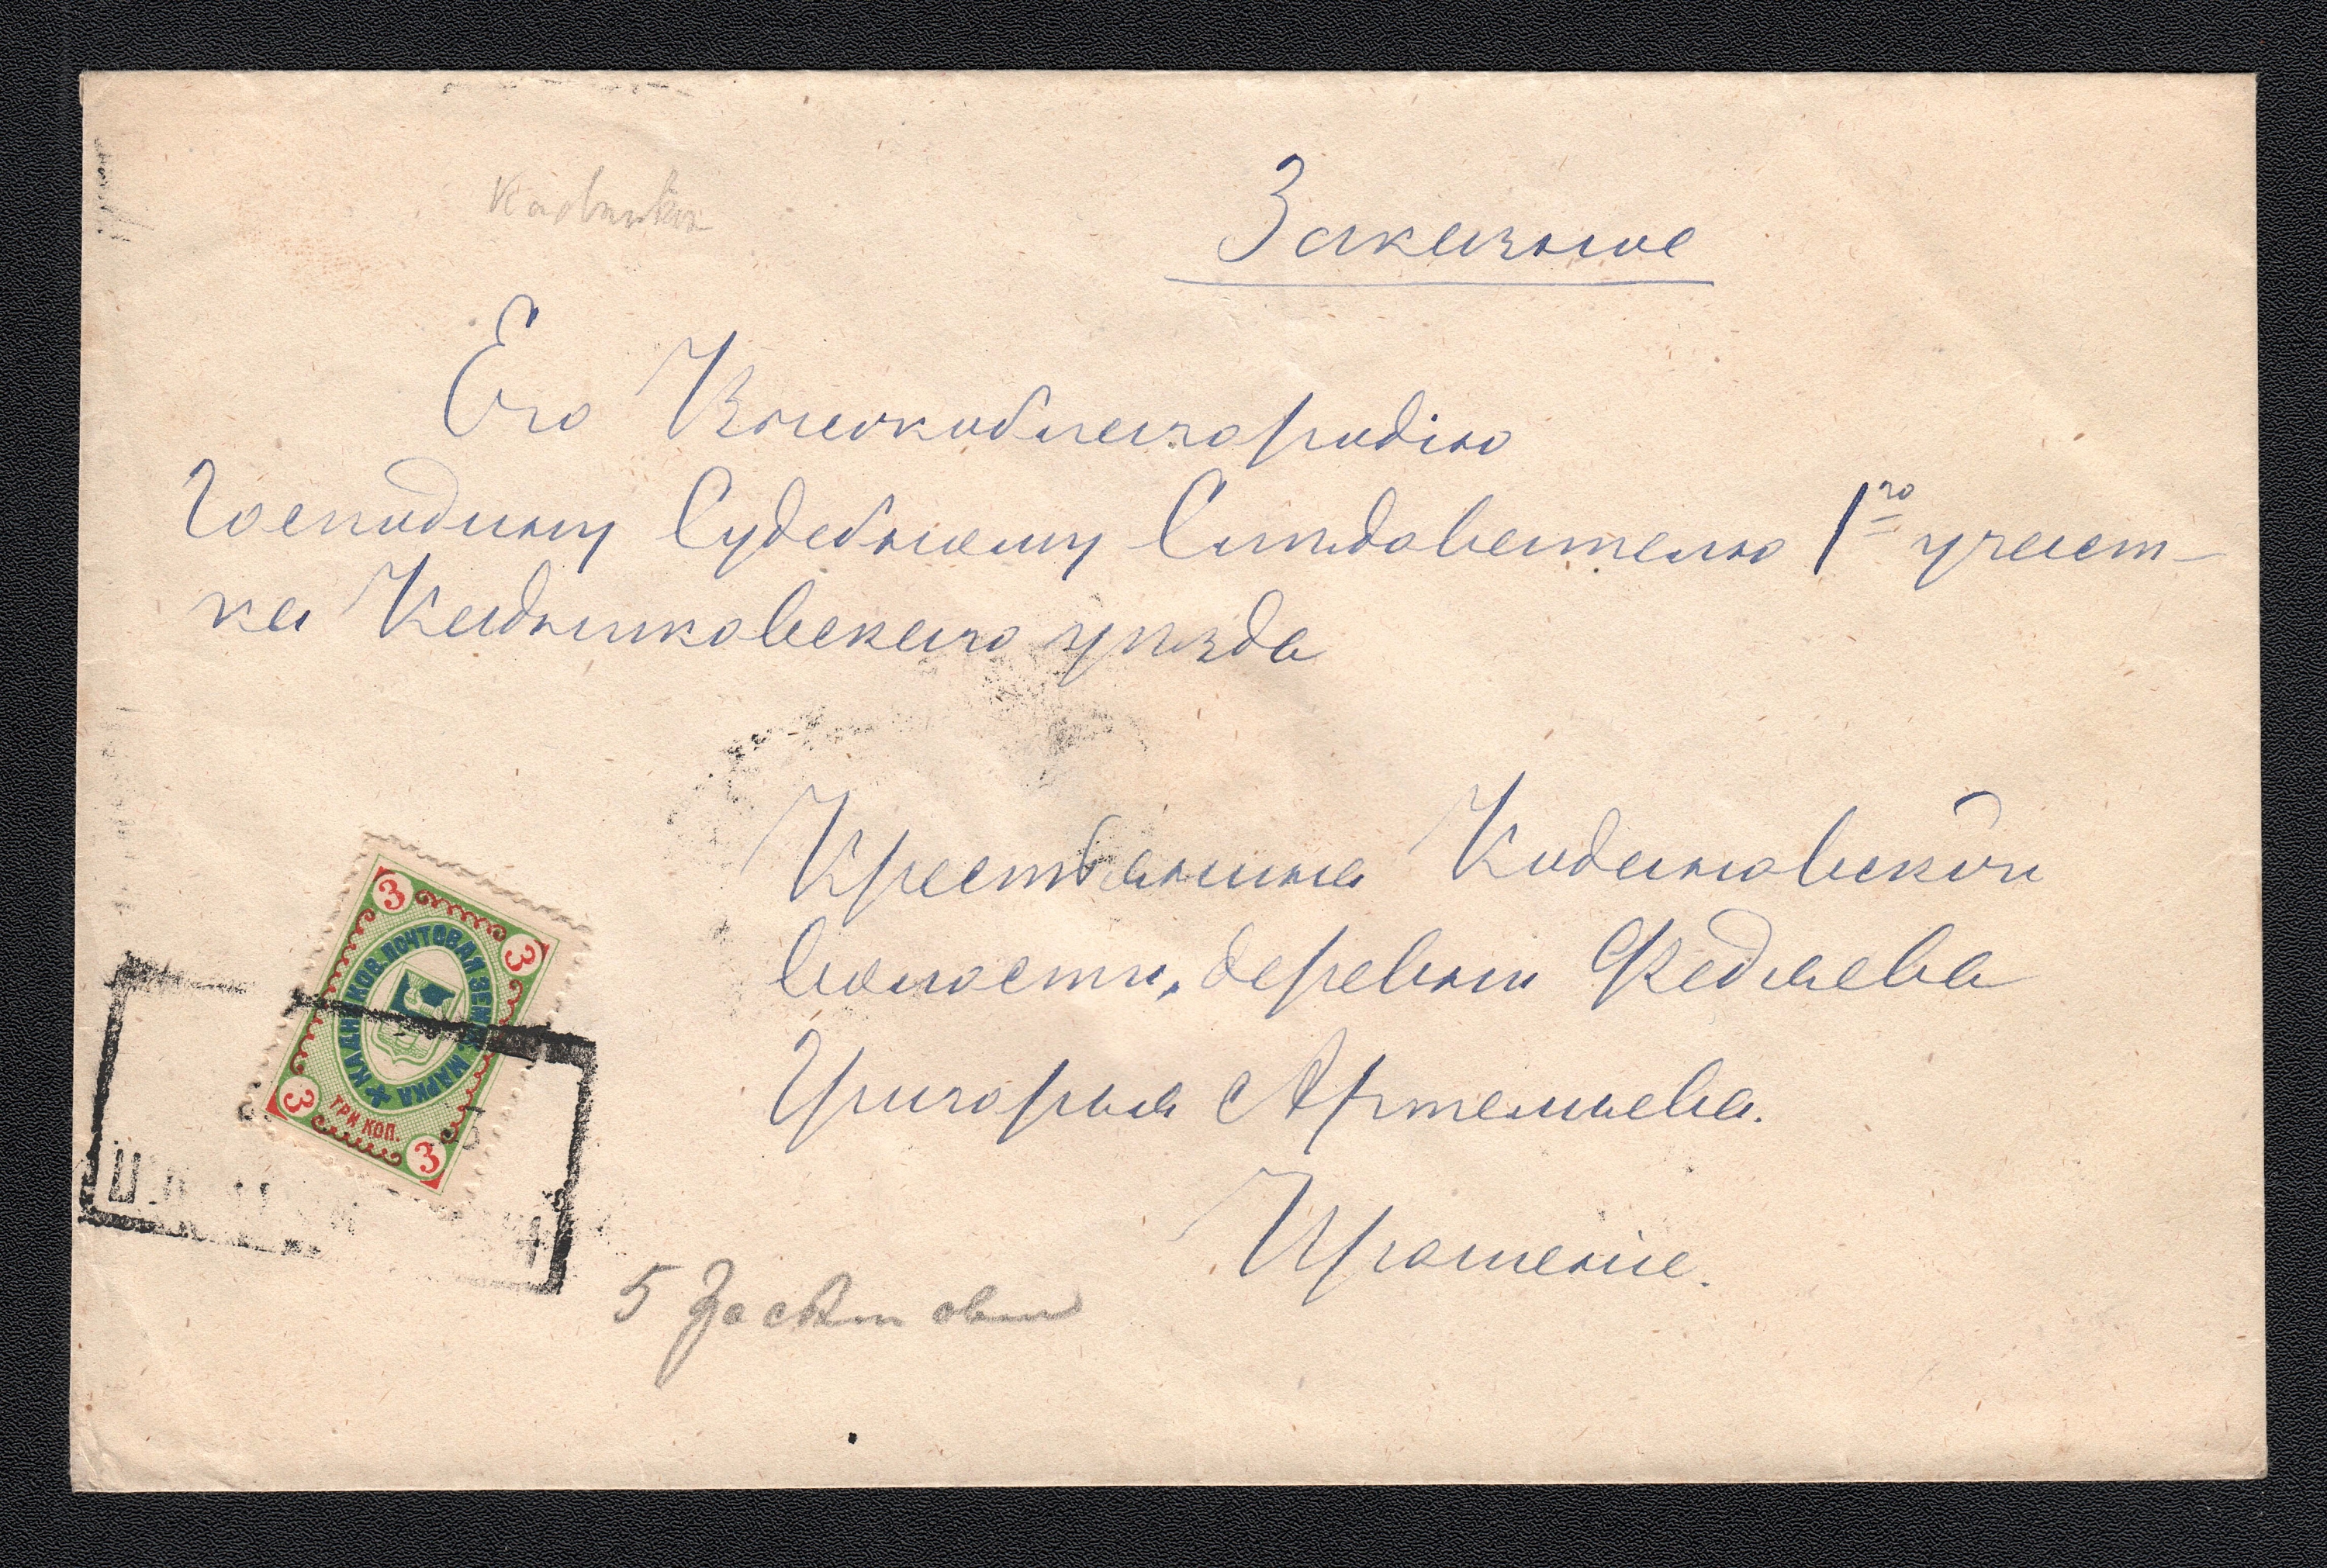 Заказное
Его Высокоблагородію
Господину Судебному Слѣдователю 1го участ-
ка Кадниковскаго уѣзда
Крестьянина Кодановской
волости, деревни Федяева
Григорья Артемьева.
Прошеніе.
КАДНИКОВ. ПОЧТОВАЯ ЗЕМС. МАРКА
ТРИ КОП.
3 3 3 3
5